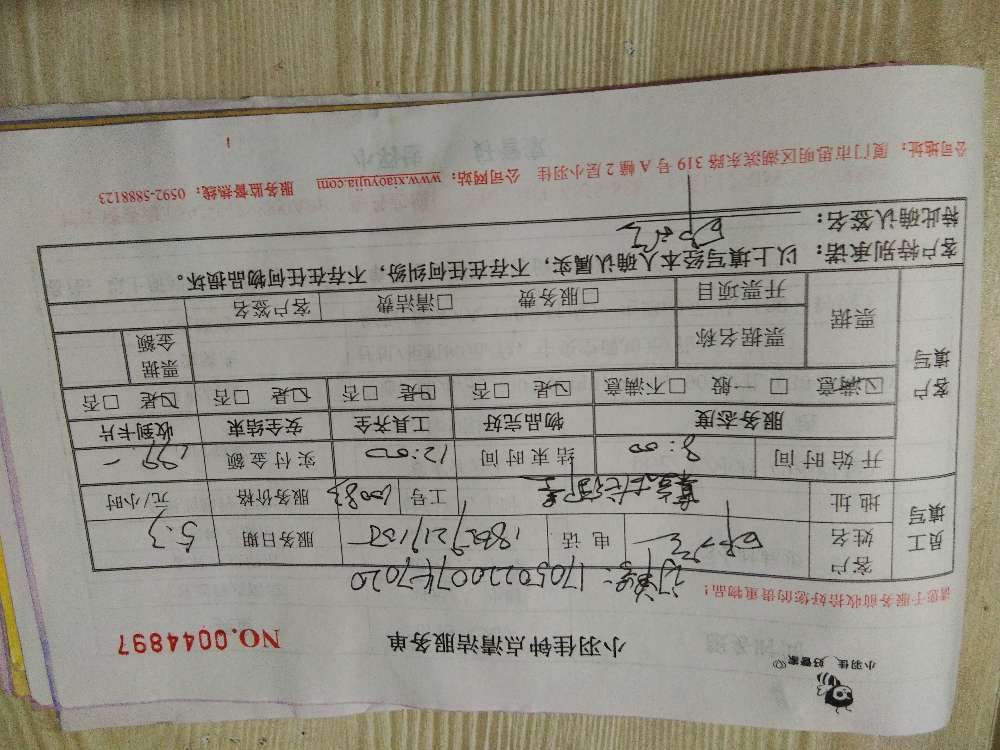 小羽佳 好管家
小羽佳钟点清洁服务单 NO.0044897
请您于服务前收拾好您的贵重物品!
订单号:170502200747020
员工填写 客户姓名 电话 服务日期 5.3
地址 工号 10083 服务价格 元/小时
开始时间 8:00 结束时间 12:00 实付金额
客户填写 服务态度 物品完好 工具齐全 安全结束 收到卡片
☑满意 □一般 □不满意 ☑是 □否 ☑是 □否 ☑是 □否 ☑是 □否
票据 票据名称 票据金额
开票项目 □服务费 □清洁费 客户签名
客户特别承诺:以上填写经本人确认属实,不存在任何纠纷,不存在任何物品损坏。
特此确认签名:
公司地址:厦门市思明区湖滨东路 319 号 A 幢 2 层小羽佳 公司网站:www.xiaoyujia.com 服务监督热线:0592-5888123